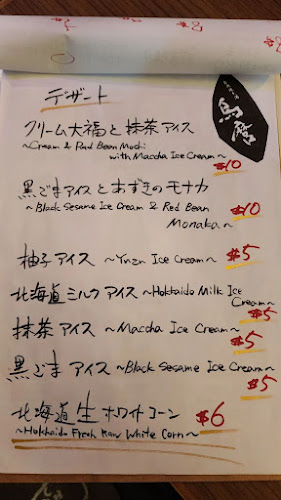 デザート
クリーム大福と抹茶アイス
~Cream & Red Bean Mochi
with Maccha Ice Cream~
$10
黒ごまアイスとあずきのモナカ
~Black Sesame Ice Cream & Red Bean
Monaka~
$10
柚子アイス ~Yuzu Ice Cream~ $5
北海道ミルクアイス ~Hokkaido Milk Ice
Cream~
$5
抹茶アイス ~Maccha Ice Cream~
$5
黒ごまアイス ~Black Sesame Ice Cream~
$5
北海道生ホワイトコーン $6
~Hokkaido Fresh Raw White Corn~